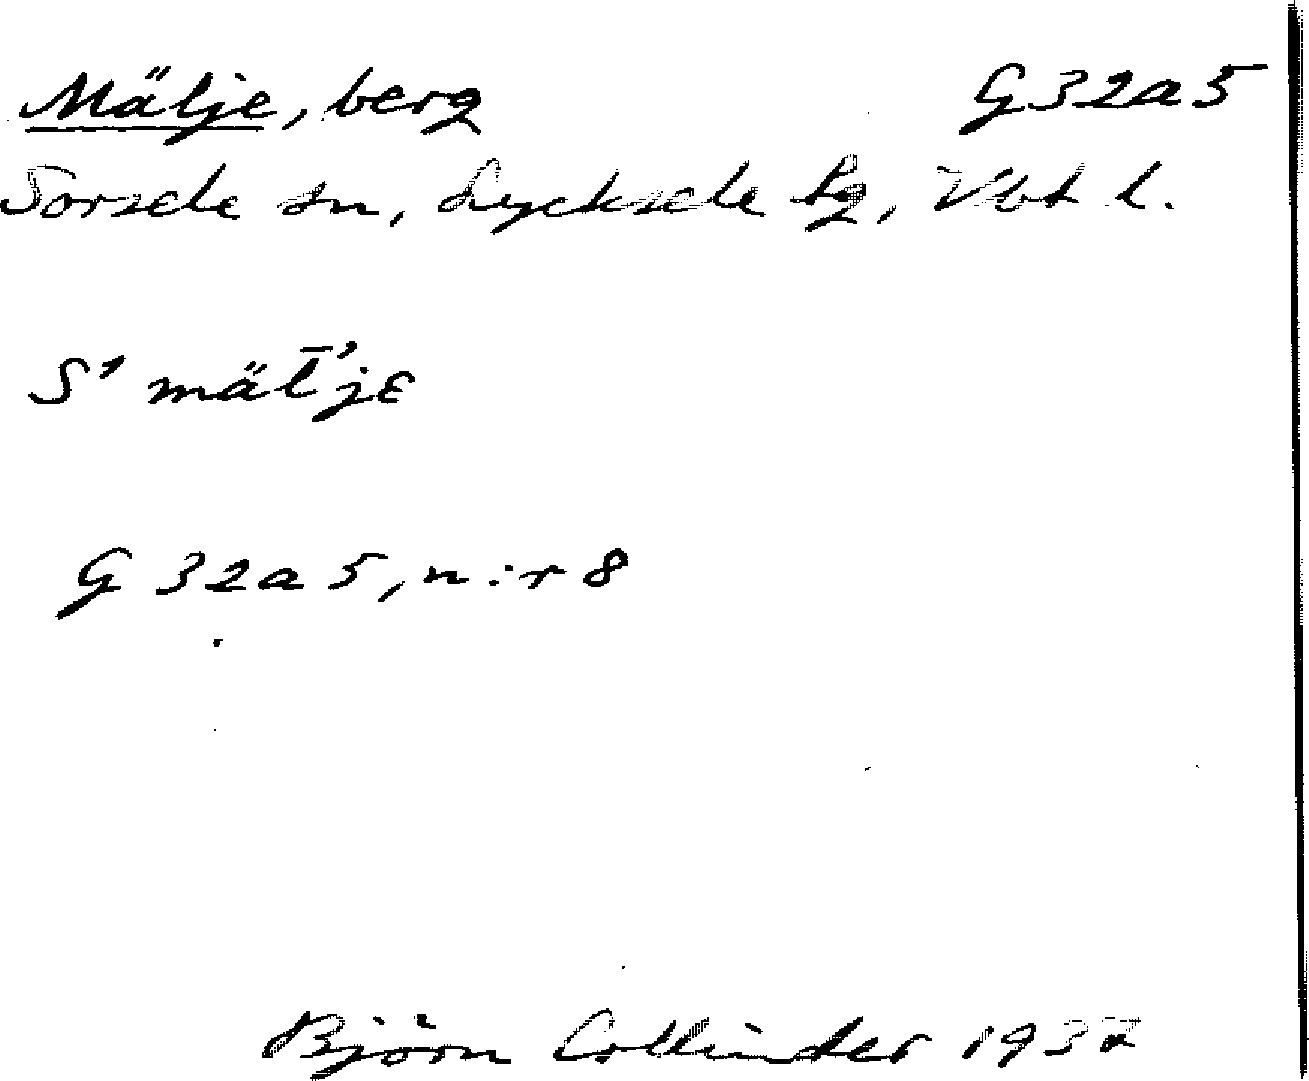 Mälje, berg G32a5
Sorsele sn, Lycksele lg, Vbt l.
S' mäl̄'jɛ
G 32a5, n:r 8
Björn Collinder 1937